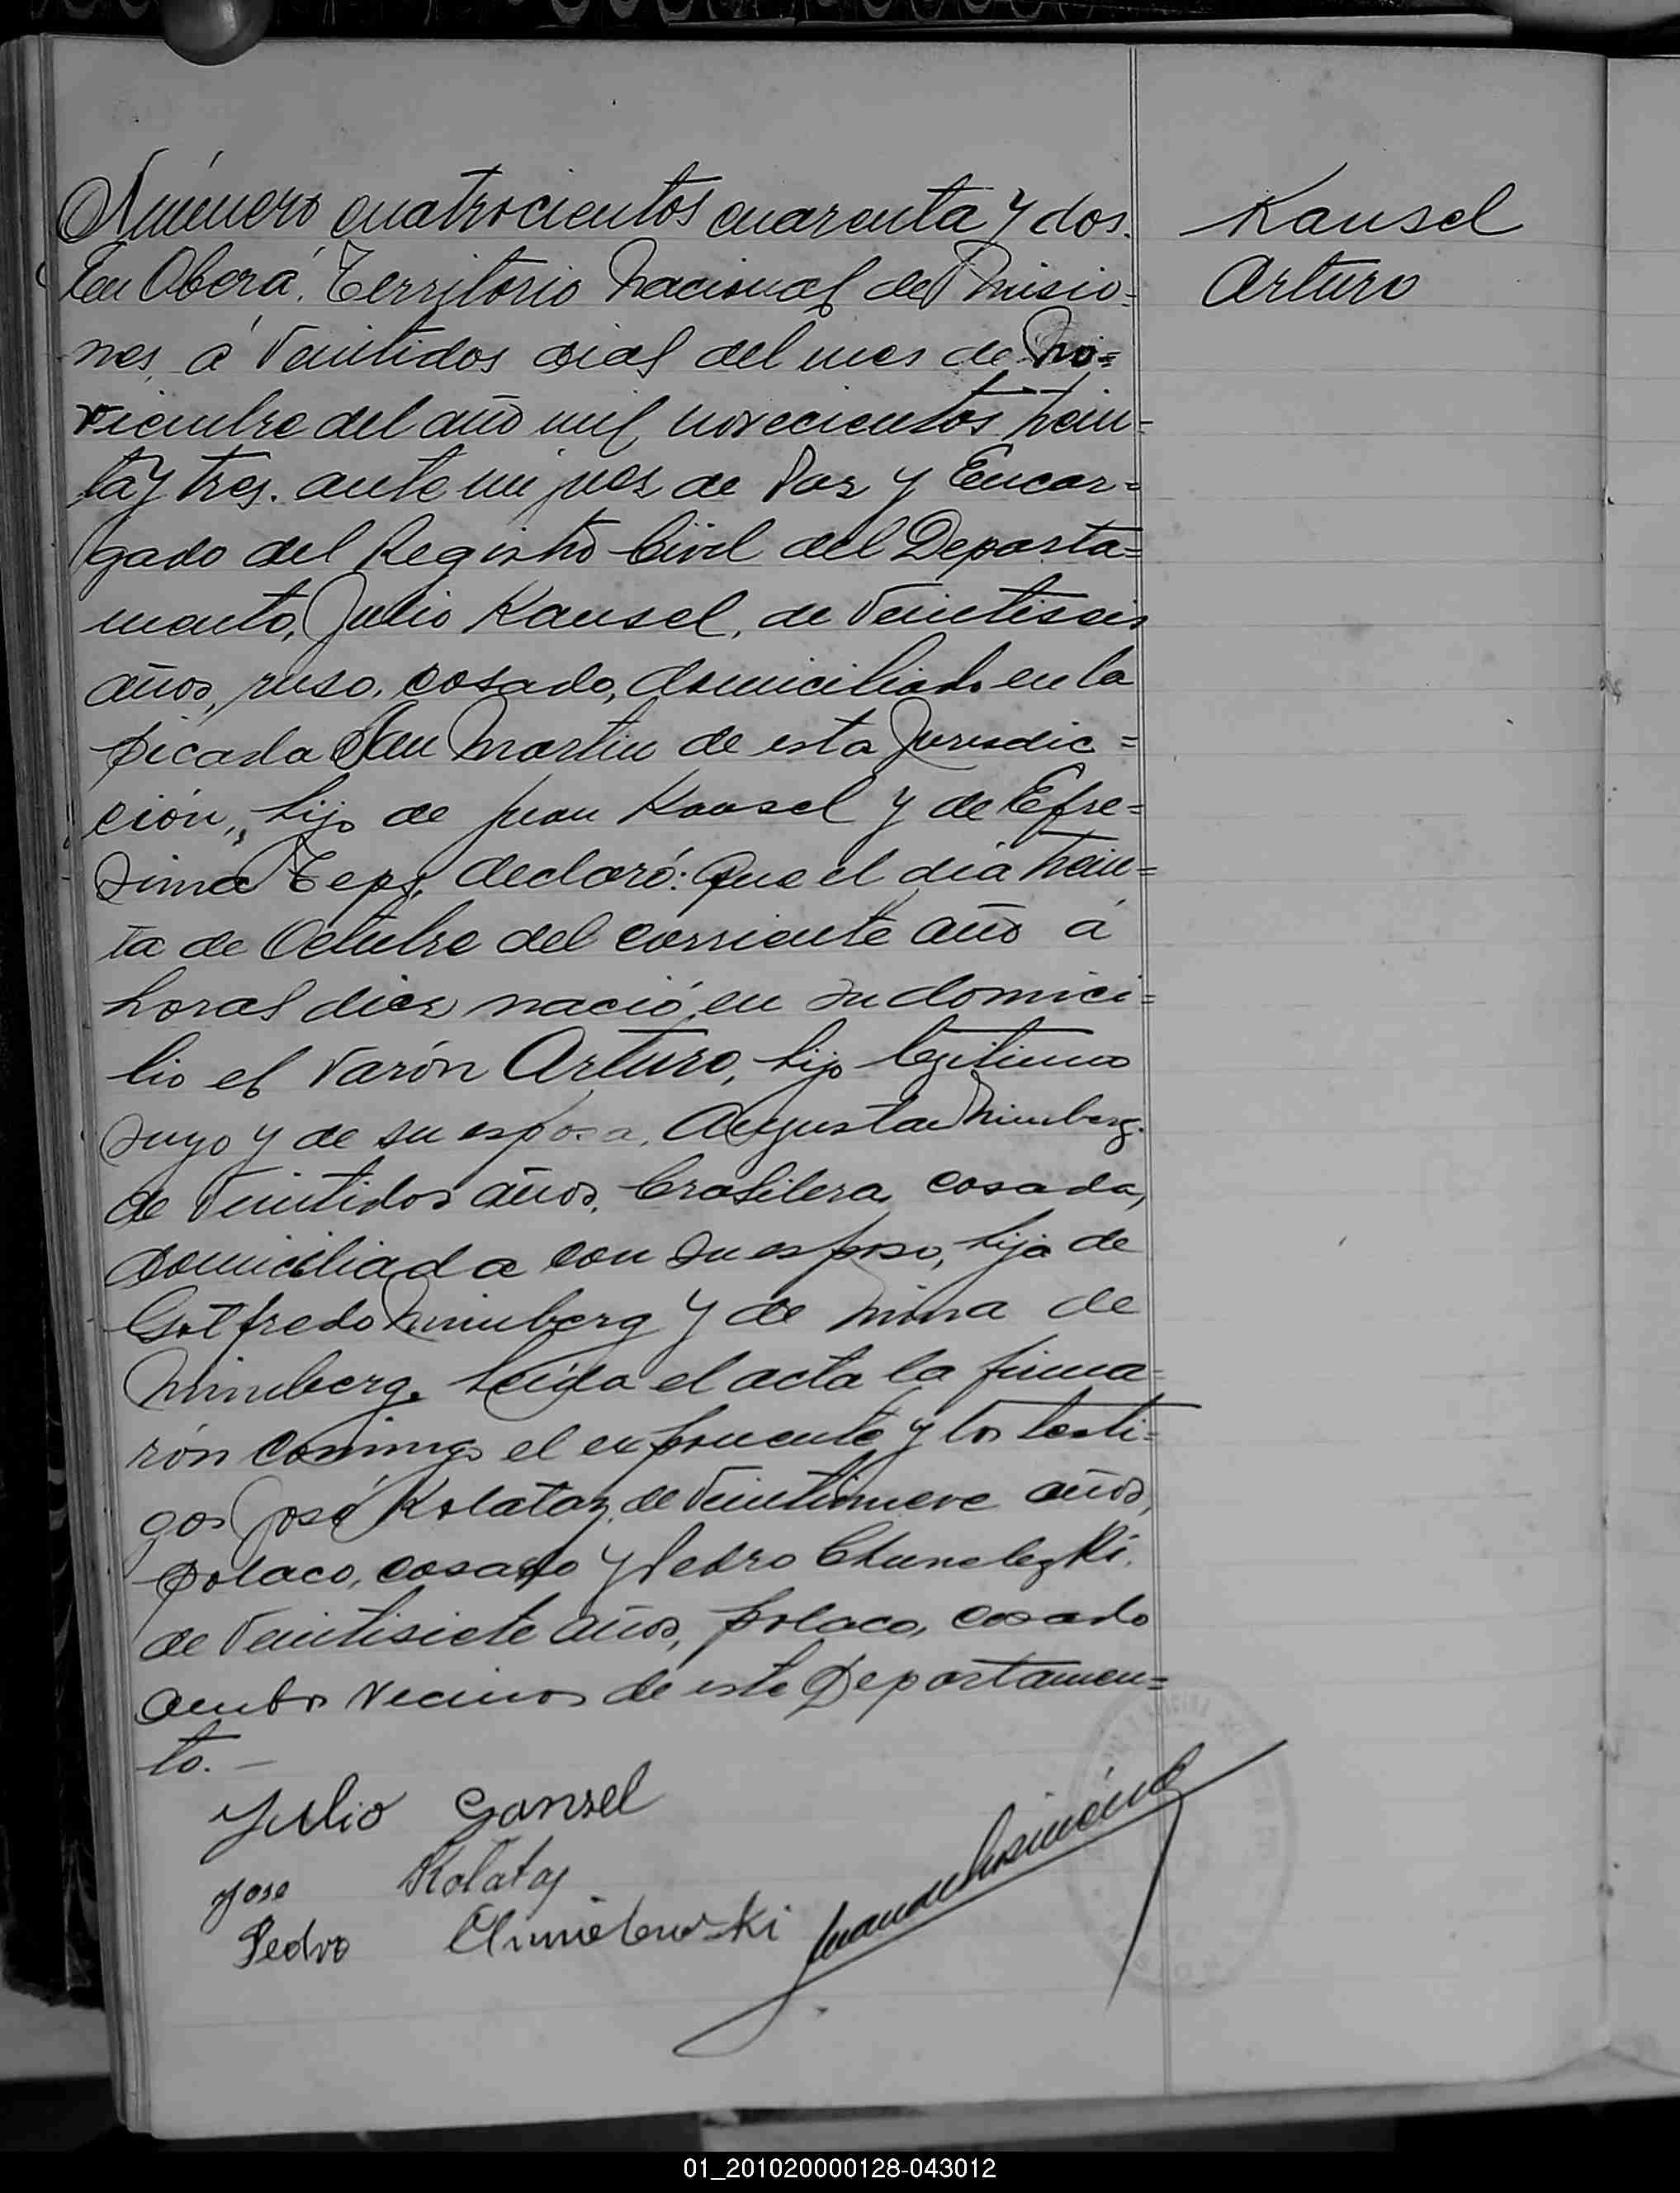 Número cuatrocientos cuarenta y dos.
Kausel
Arturo
En Oberá, Territorio Nacional de Misio=
nes, á veintidos dias del mes de No=
viembre del año mil novecientos trein=
ta y tres. ante mi juez de Paz y Encar=
gado del Registro Civil del Departa=
mento, Julio Kausel, de veintiseis
años, ruso, casado, domiciliado en la
picada San Martin de esta Jurisdic=
ción, hijo de Juan Kausel y de Efre=
sima declaró: Que el dia trein=
ta de Octubre del corriente año á
horas diez nació en su domici=
lio el varón Arturo, hijo legitimo
suyo y de su esposa, Augusta
de veintidos años, brasilera, casada,
domiciliada con su esposo, hija de
Gotfredo y de Mina de
Leida el acta la firma=
rón conmigo el exponente y los testi=
gos José Kolataz, de veintinueve años,
polaco, casado y Pedro
de veintisiete años, polaco, casado
ambos vecinos de este Departamen=
to.-
Julio Gansel
Jose Kolataj
Pedro Chmielewski
01_201020000128-043012